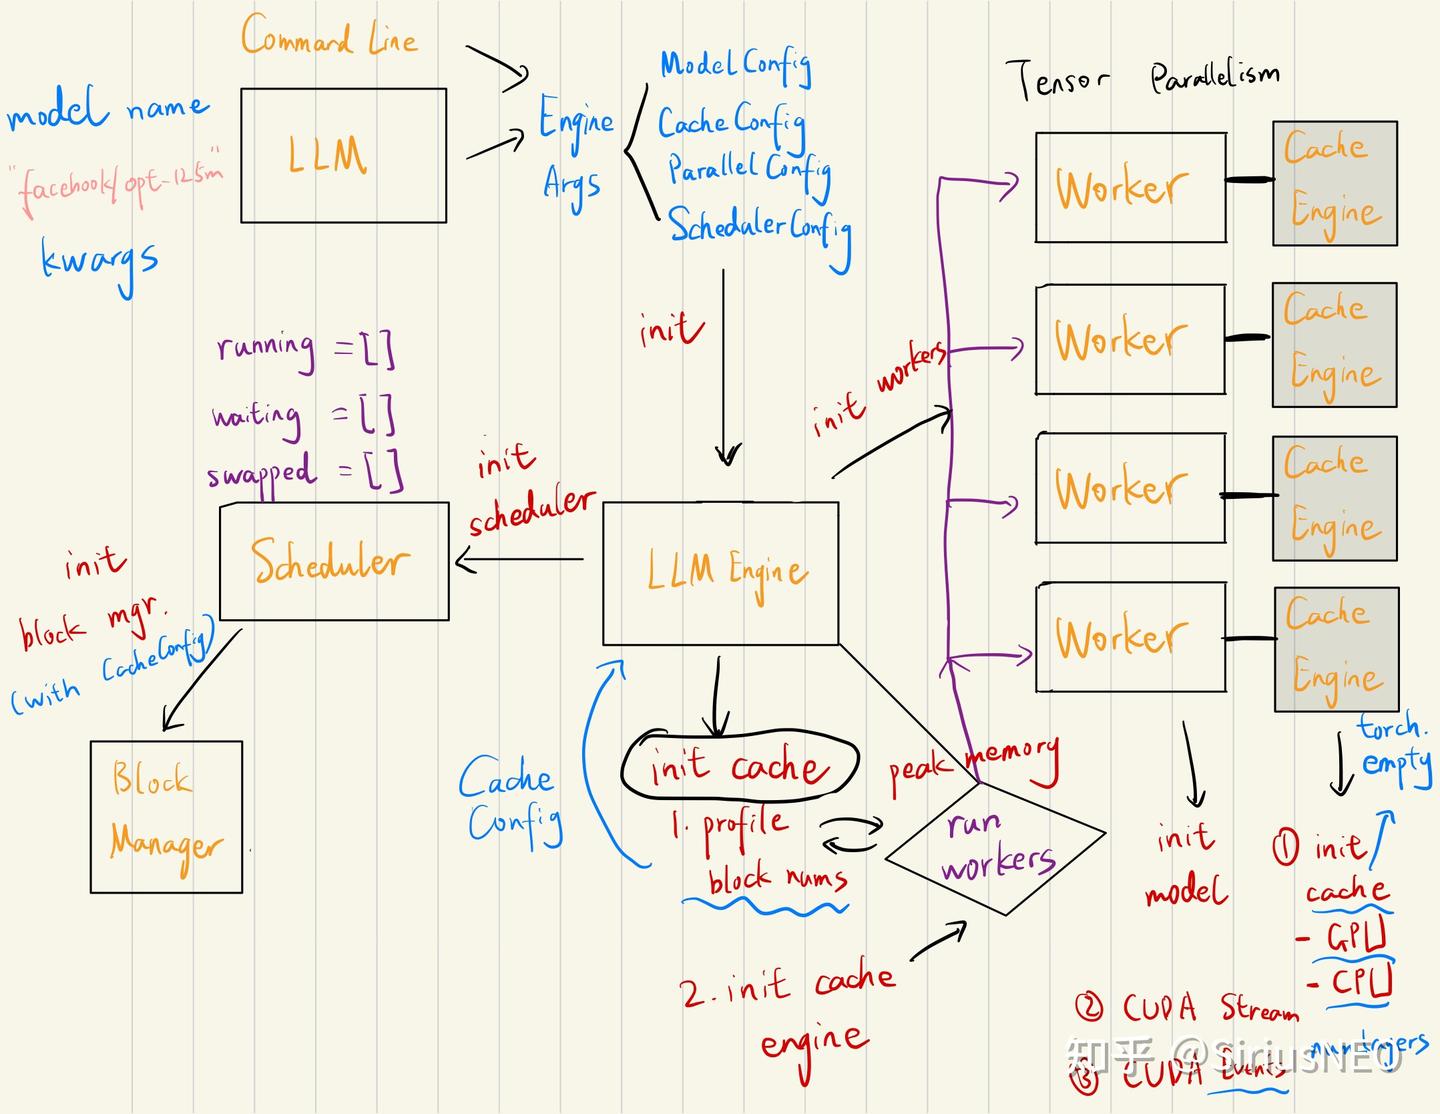 Command Line
model name
"facebook/opt-125m"
kwargs
LLM
Engine
Args
ModelConfig
CacheConfig
Parallel Config
SchedulerConfig
Tensor Parallelism
Worker
Cache
Engine
Worker
Cache
Engine
Worker
Cache
Engine
Worker
Cache
Engine
init
init workers
running = []
waiting = []
swapped = []
init
scheduler
Scheduler
LLM Engine
init
block mgr.
(with CacheConfig)
Block
Manager
Cache
Config
init cache
1. profile
block nums
peak memory
run
workers
2. init cache
engine
init
model
torch.
empty
① init
cache
- GPU
- CPU
② CUDA Stream
③ CUDA Events
知乎 @SiriusNEO